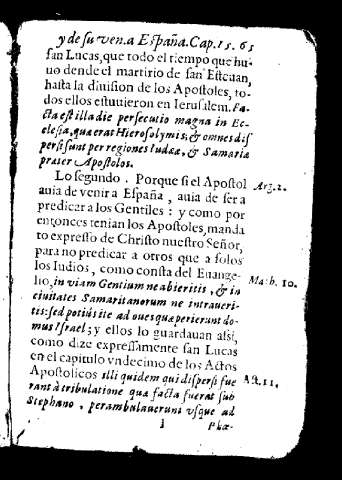 y de su ven.a España. Cap. 15. 65
san Lucas, que todo el tiempo que hu-
uo dende el martirio de san Esteuan,
hasta la diuision de los Apostoles, to-
dos ellos estuuieron en Ierusalem. Fa-
cta est illa die persecutio magna in Ec-
clesia, quæ erat Hierosolymis; & omnes dis
persi sunt per regiones Iudææ, & Samariæ
præter Apostolos.
Lo segundo. Porque si el Apostol
auia de venir a España, auia de ser a
predicar a los Gentiles: y como por
entonces tenian los Apostoles, manda
to expresso de Christo nuestro Señor,
para no predicar a otros que a solos
los Iudios, como consta del Euange-
lio, in viam Gentium ne abieritis, & in
ciuitates Samaritanorum ne intraueri-
tis: sed potius ite ad oues quæ perierunt do-
mus Israel; y ellos lo guardauan assi,
como dize expressamente san Lucas
en el capitulo vndecimo de los Actos
Apostolicos illi quidem qui dispersi fue
rant à tribulatione quæ facta fuerat sub
Stephano, perambulauerunt vsque ad
Arg. 2.
Math. 10.
Act. 11.
I
Phæ-